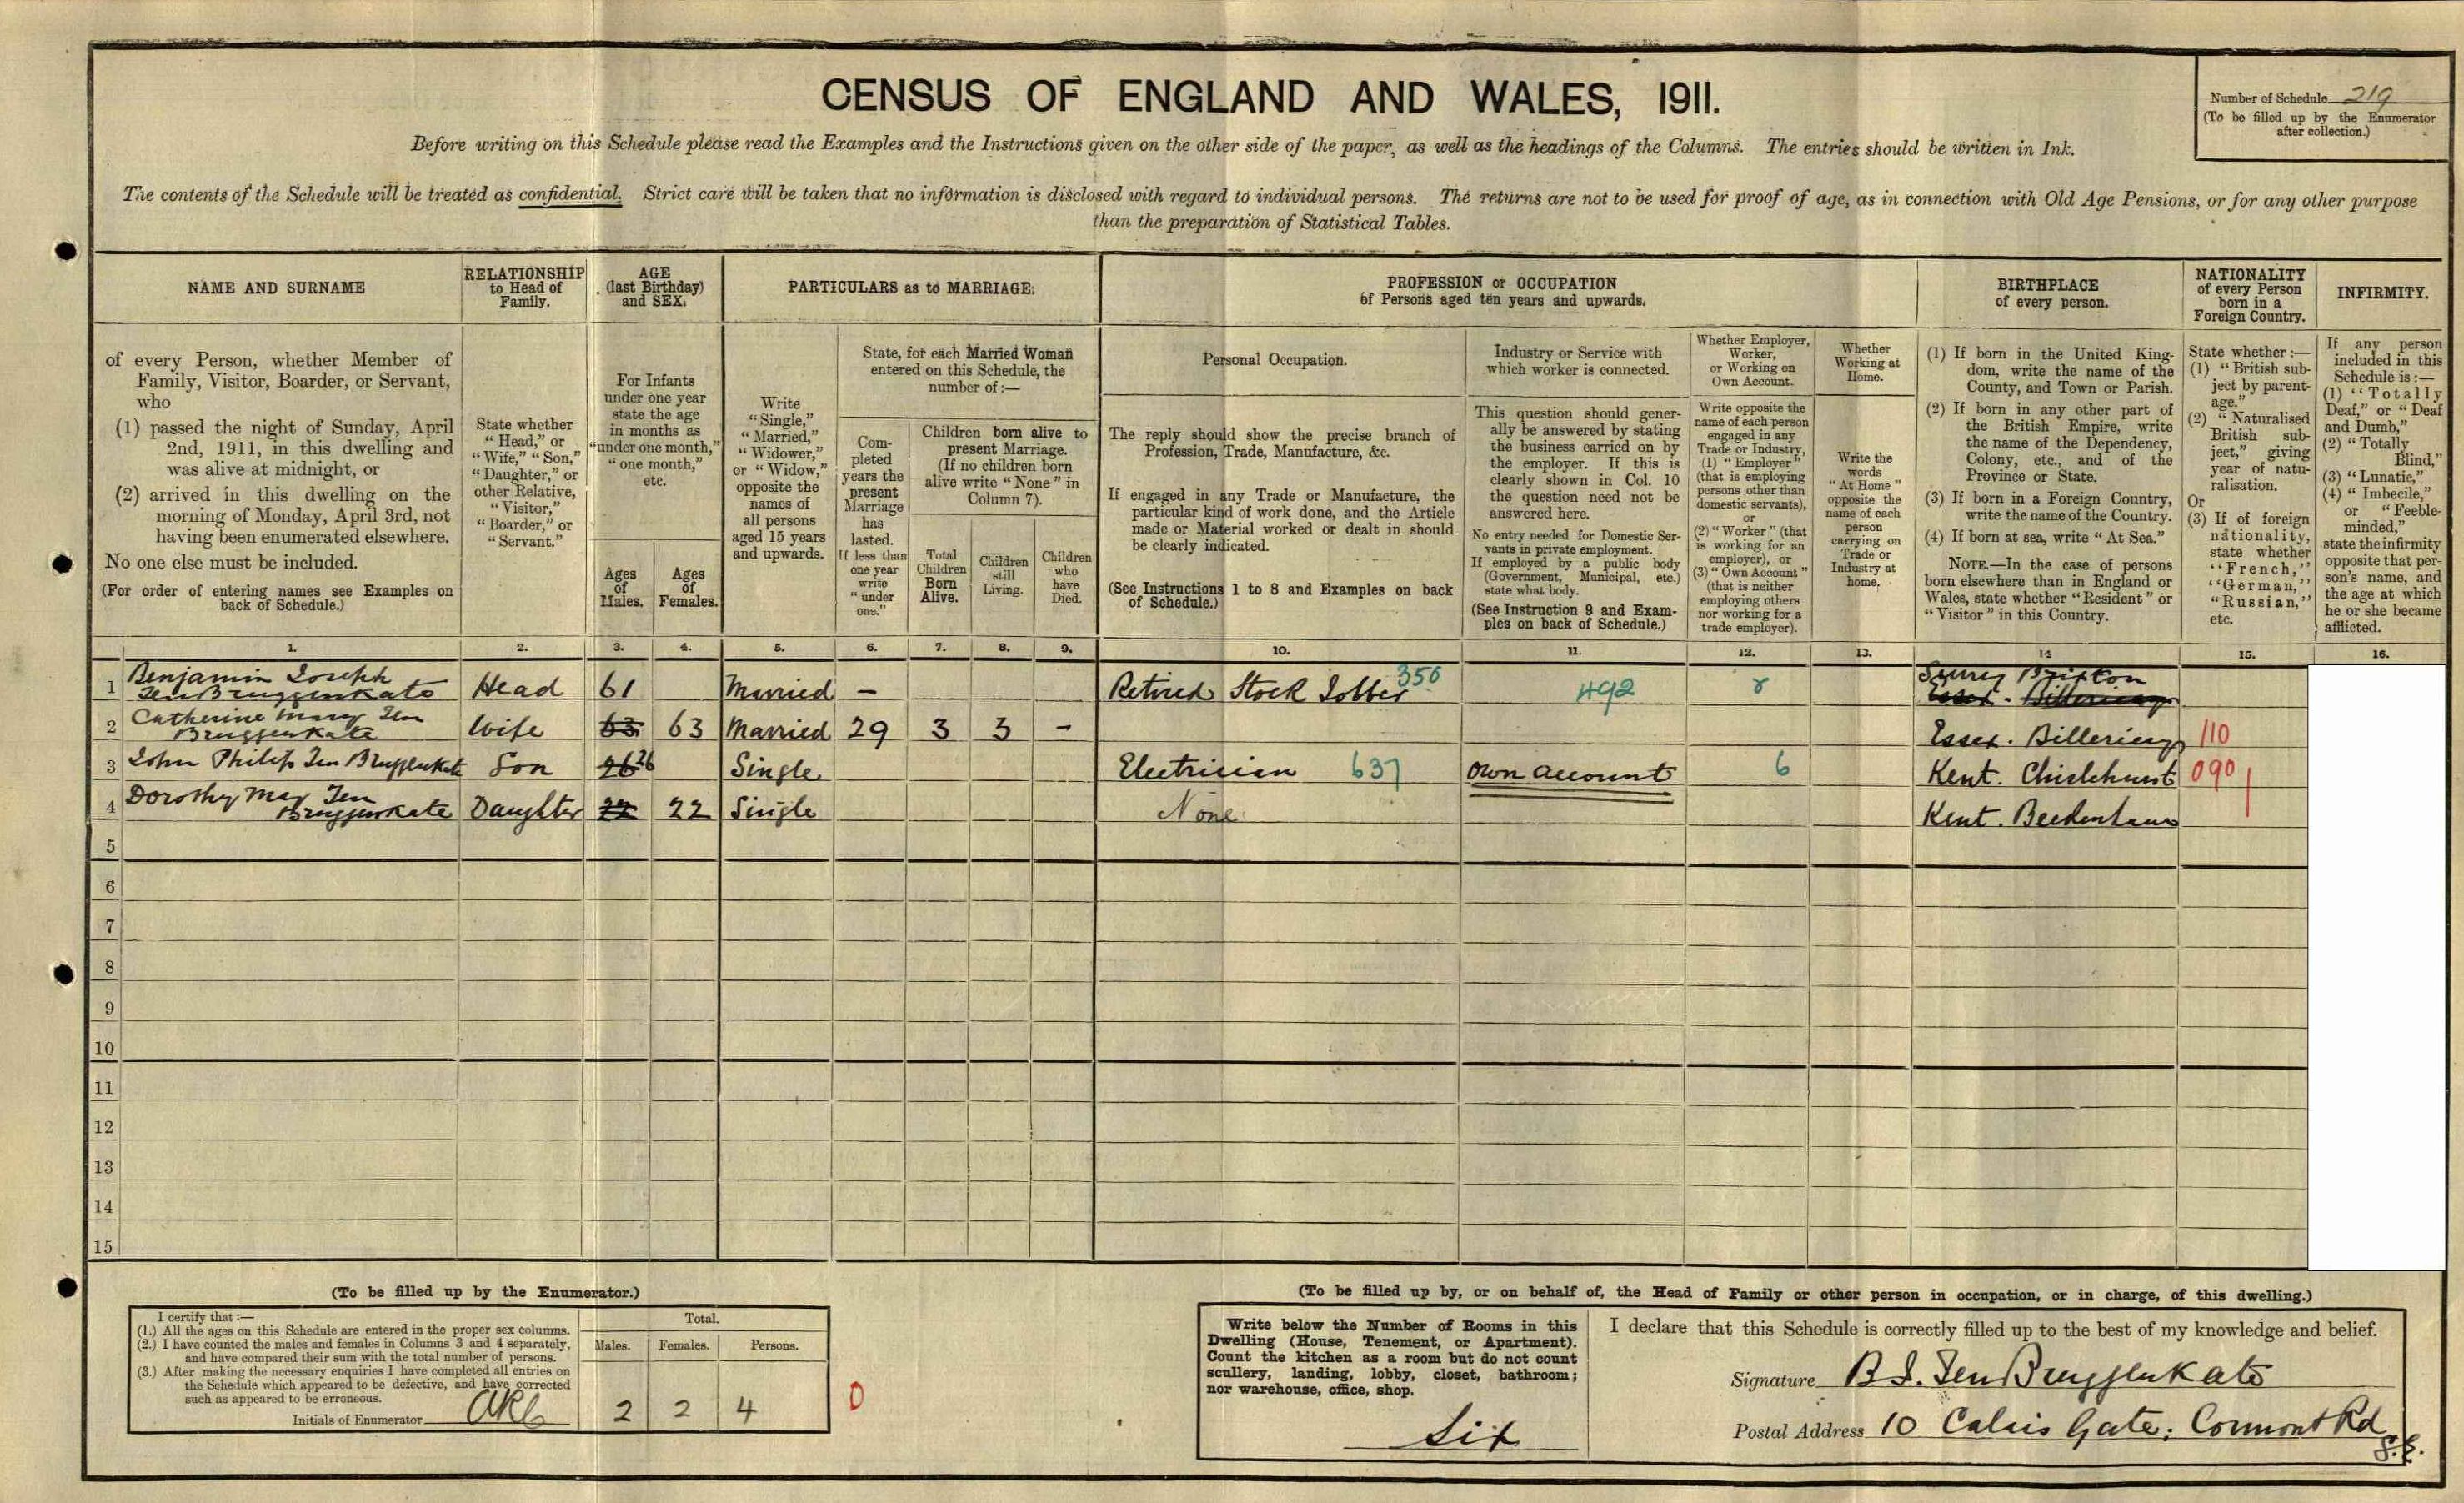 CENSUS OF ENGLAND AND WALES, 1911.
Number of Schedule 219
(To be filled up by the Enumerator
after collection.)
Before writing on this Schedule please read the Examples and the Instructions given on the other side of the paper, as well as the headings of the Columns. The entries should be written in Ink.
The contents of the Schedule will be treated as confidential. Strict care will be taken that no information is disclosed with regard to individual persons. The returns are not to be used for proof of age, as in connection with Old Age Pensions, or for any other purpose
than the preparation of Statistical Tables.
NAME AND SURNAME
of every Person, whether Member of
Family, Visitor, Boarder, or Servant,
who
(1) passed the night of Sunday, April
2nd, 1911, in this dwelling and
was alive at midnight, or
(2) arrived in this dwelling on the
morning of Monday, April 3rd, not
having been enumerated elsewhere.
No one else must be included.
(For order of entering names see Examples on
back of Schedule.)
RELATIONSHIP
to Head of
Family.
State whether
"Head," or
"Wife," "Son,"
"Daughter," or
other Relative,
"Visitor,"
"Boarder," or
"Servant."
AGE
(last Birthday)
and SEX.
For Infants
under one year
state the age
in months as
"under one month,"
"one month,"
etc.
Ages
of
Males.
Ages
of
Females.
PARTICULARS as to MARRIAGE.
Write
"Single,"
"Married,"
"Widower,"
or "Widow,"
opposite the
names of
all persons
aged 15 years
and upwards.
State, for each Married Woman
entered on this Schedule, the
number of:—
Com-
pleted
years the
present
Marriage
has
lasted.
If less than
one year
write
"under
one."
Children born alive to
present Marriage.
(If no children born
alive write "None" in
Column 7).
Total
Children
Born
Alive.
Children
still
Living.
Children
who
have
Died.
PROFESSION or OCCUPATION
of Persons aged ten years and upwards.
Personal Occupation.
The reply should show the precise branch of
Profession, Trade, Manufacture, &c.
If engaged in any Trade or Manufacture, the
particular kind of work done, and the Article
made or Material worked or dealt in should
be clearly indicated.
(See Instructions 1 to 8 and Examples on back
of Schedule.)
Industry or Service with
which worker is connected.
This question should gener-
ally be answered by stating
the business carried on by
the employer. If this is
clearly shown in Col. 10
the question need not be
answered here.
No entry needed for Domestic Ser-
vants in private employment.
If employed by a public body
(Government, Municipal, etc.)
state what body.
(See Instruction 9 and Exam-
ples on back of Schedule.)
Whether Employer,
Worker,
or Working on
Own Account.
Write opposite the
name of each person
engaged in any
Trade or Industry,
(1) "Employer"
(that is employing
persons other than
domestic servants),
or
(2) "Worker" (that
is working for an
employer), or
(3) "Own Account"
(that is neither
employing others
nor working for a
trade employer).
Whether
Working at
Home.
Write the
words
"At Home"
opposite the
name of each
person
carrying on
Trade or
Industry at
home.
BIRTHPLACE
of every person.
(1) If born in the United King-
dom, write the name of the
County, and Town or Parish.
(2) If born in any other part of
the British Empire, write
the name of the Dependency,
Colony, etc., and of the
Province or State.
(3) If born in a Foreign Country,
write the name of the Country.
(4) If born at sea, write "At Sea."
NOTE.—In the case of persons
born elsewhere than in England or
Wales, state whether "Resident" or
"Visitor" in this Country.
NATIONALITY
of every Person
born in a
Foreign Country.
State whether:—
(1) "British sub-
ject by parent-
age."
(2) "Naturalised
British sub-
ject," giving
year of natu-
ralisation.
Or
(3) If of foreign
nationality,
state whether
"French,"
"German,"
"Russian,"
etc.
INFIRMITY.
If any person
included in this
Schedule is:—
(1) "Totally
Deaf," or "Deaf
and Dumb,"
(2) "Totally
Blind,"
(3) "Lunatic,"
(4) "Imbecile,"
or "Feeble-
minded,"
state the infirmity
opposite that per-
son's name, and
the age at which
he or she became
afflicted.
1. 2. 3. 4. 5. 6. 7. 8. 9. 10. 11. 12. 13. 14 15. 16.
1 Benjamin Joseph
Ten Bruggenkate Head 61 Married – Retired Stock Jobber 350 492 8 Surrey Brixton
Essex. Billericay
2 Catherine Mary Ten
Bruggenkate Wife 63 63 Married 29 3 3 – Essex. Billericay 110
3 John Philip Ten Bruggenkate Son 26 26 Single Electrician 637 Own account 6 Kent. Chislehurst 090
4 Dorothy May Ten
Bruggenkate Daughter 22 22 Single None Kent. Beckenham
5
6
7
8
9
10
11
12
13
14
15
(To be filled up by the Enumerator.)
I certify that:—
(1.) All the ages on this Schedule are entered in the proper sex columns.
(2.) I have counted the males and females in Columns 3 and 4 separately,
and have compared their sum with the total number of persons.
(3.) After making the necessary enquiries I have completed all entries on
the Schedule which appeared to be defective, and have corrected
such as appeared to be erroneous.
Initials of Enumerator
Total.
Males. Females. Persons.
2 2 4 0
(To be filled up by, or on behalf of, the Head of Family or other person in occupation, or in charge, of this dwelling.)
Write below the Number of Rooms in this
Dwelling (House, Tenement, or Apartment).
Count the kitchen as a room but do not count
scullery, landing, lobby, closet, bathroom;
nor warehouse, office, shop.
Six
I declare that this Schedule is correctly filled up to the best of my knowledge and belief.
Signature B J. Ten Bruggenkate
Postal Address 10 Calais Gate, Cormont Rd
S.E.